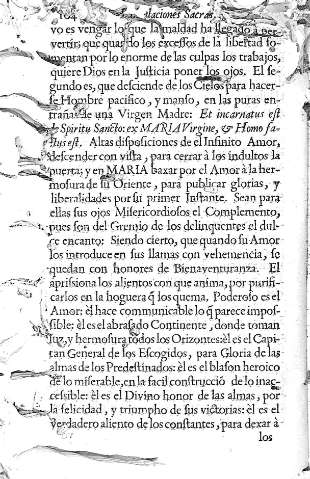 104 laciones Sacras,
vo es vengar lo que la maldad ha llegado à per-
vertir: que quando los excessos de la libertad fo-
mentan por lo enorme de las culpas los trabajos,
quiere Dios en la Justicia poner los ojos. El se-
gundo es, que desciende de los Cielos para hacer-
se Hombre pacifico, y manso, en las puras en-
trañas de una Virgen Madre: Et incarnatus est
de Spiritu Sancto: ex MARIA Virgine, & Homo fa-
ctus est. Altas disposiciones de el Infinito Amor,
descender con vista, para cerrar à los indultos la
puerta; y en MARIA baxar por el Amor à la her-
mosura de su Oriente, para publicar glorias, y
liberalidades por su primer Instante. Sean para
ellas sus ojos Misericordiosos el Complemento,
pues son del Gremio de los delinquentes el dul-
ce encanto: Siendo cierto, que quando su Amor
los introduce en sus llamas con vehemencia, se
quedan con honores de Bienaventuranza. El
aprissiona los alientos con que anima, por purifi-
carlos en la hoguera q̃ los quema. Poderoso es el
Amor: èl hace communicable lo q̃ parece impos-
sible: èl es el abrasado Continente, donde toman
luz, y hermosura todos los Orizontes: èl es el Capi-
tan General de los Escogidos, para Gloria de las
almas de los Predestinados: èl es el blason heroico
de lo miserable, en la facil construcciõ de lo inac-
cessible: èl es el Divino honor de las almas, por
la felicidad, y triumpho de sus victorias: èl es el
verdadero aliento de los constantes, para dexar à
los